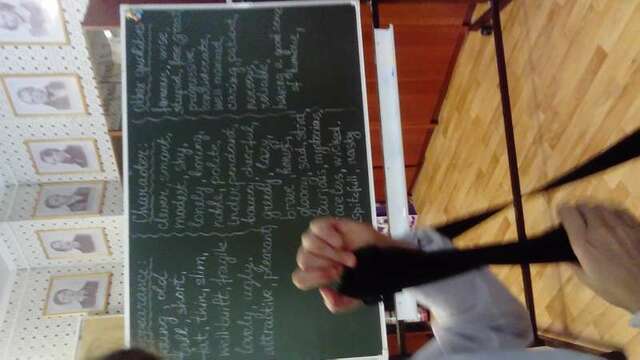 appearance:
young, old
tall, short,
fat, thin, slim,
well-built, fragile
lovely, ugly.
attractive, pleasant
Character:
clever, smart,
modest, shy,
lonely, boring,
noble, polite,
independant,
cheerful,
greedy, lazy,
brave, honest,
gloomy, sad, strict
curious, mysterious,
careless, wicked.
spitefull, nasty
Other qualities
famous, wise,
stupid, great
progressive,
considerate,
well-mannered,
caring, patient,
nervous,
reliable,
having a good sense
of humour,